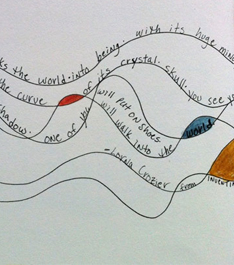 ks the world. into being. with its huge mind
the curve of its crystal. skull. you see yo
shadow. one of you will put on shoes.
will walk into the world.
-Lorna Crozier from INVENTIN